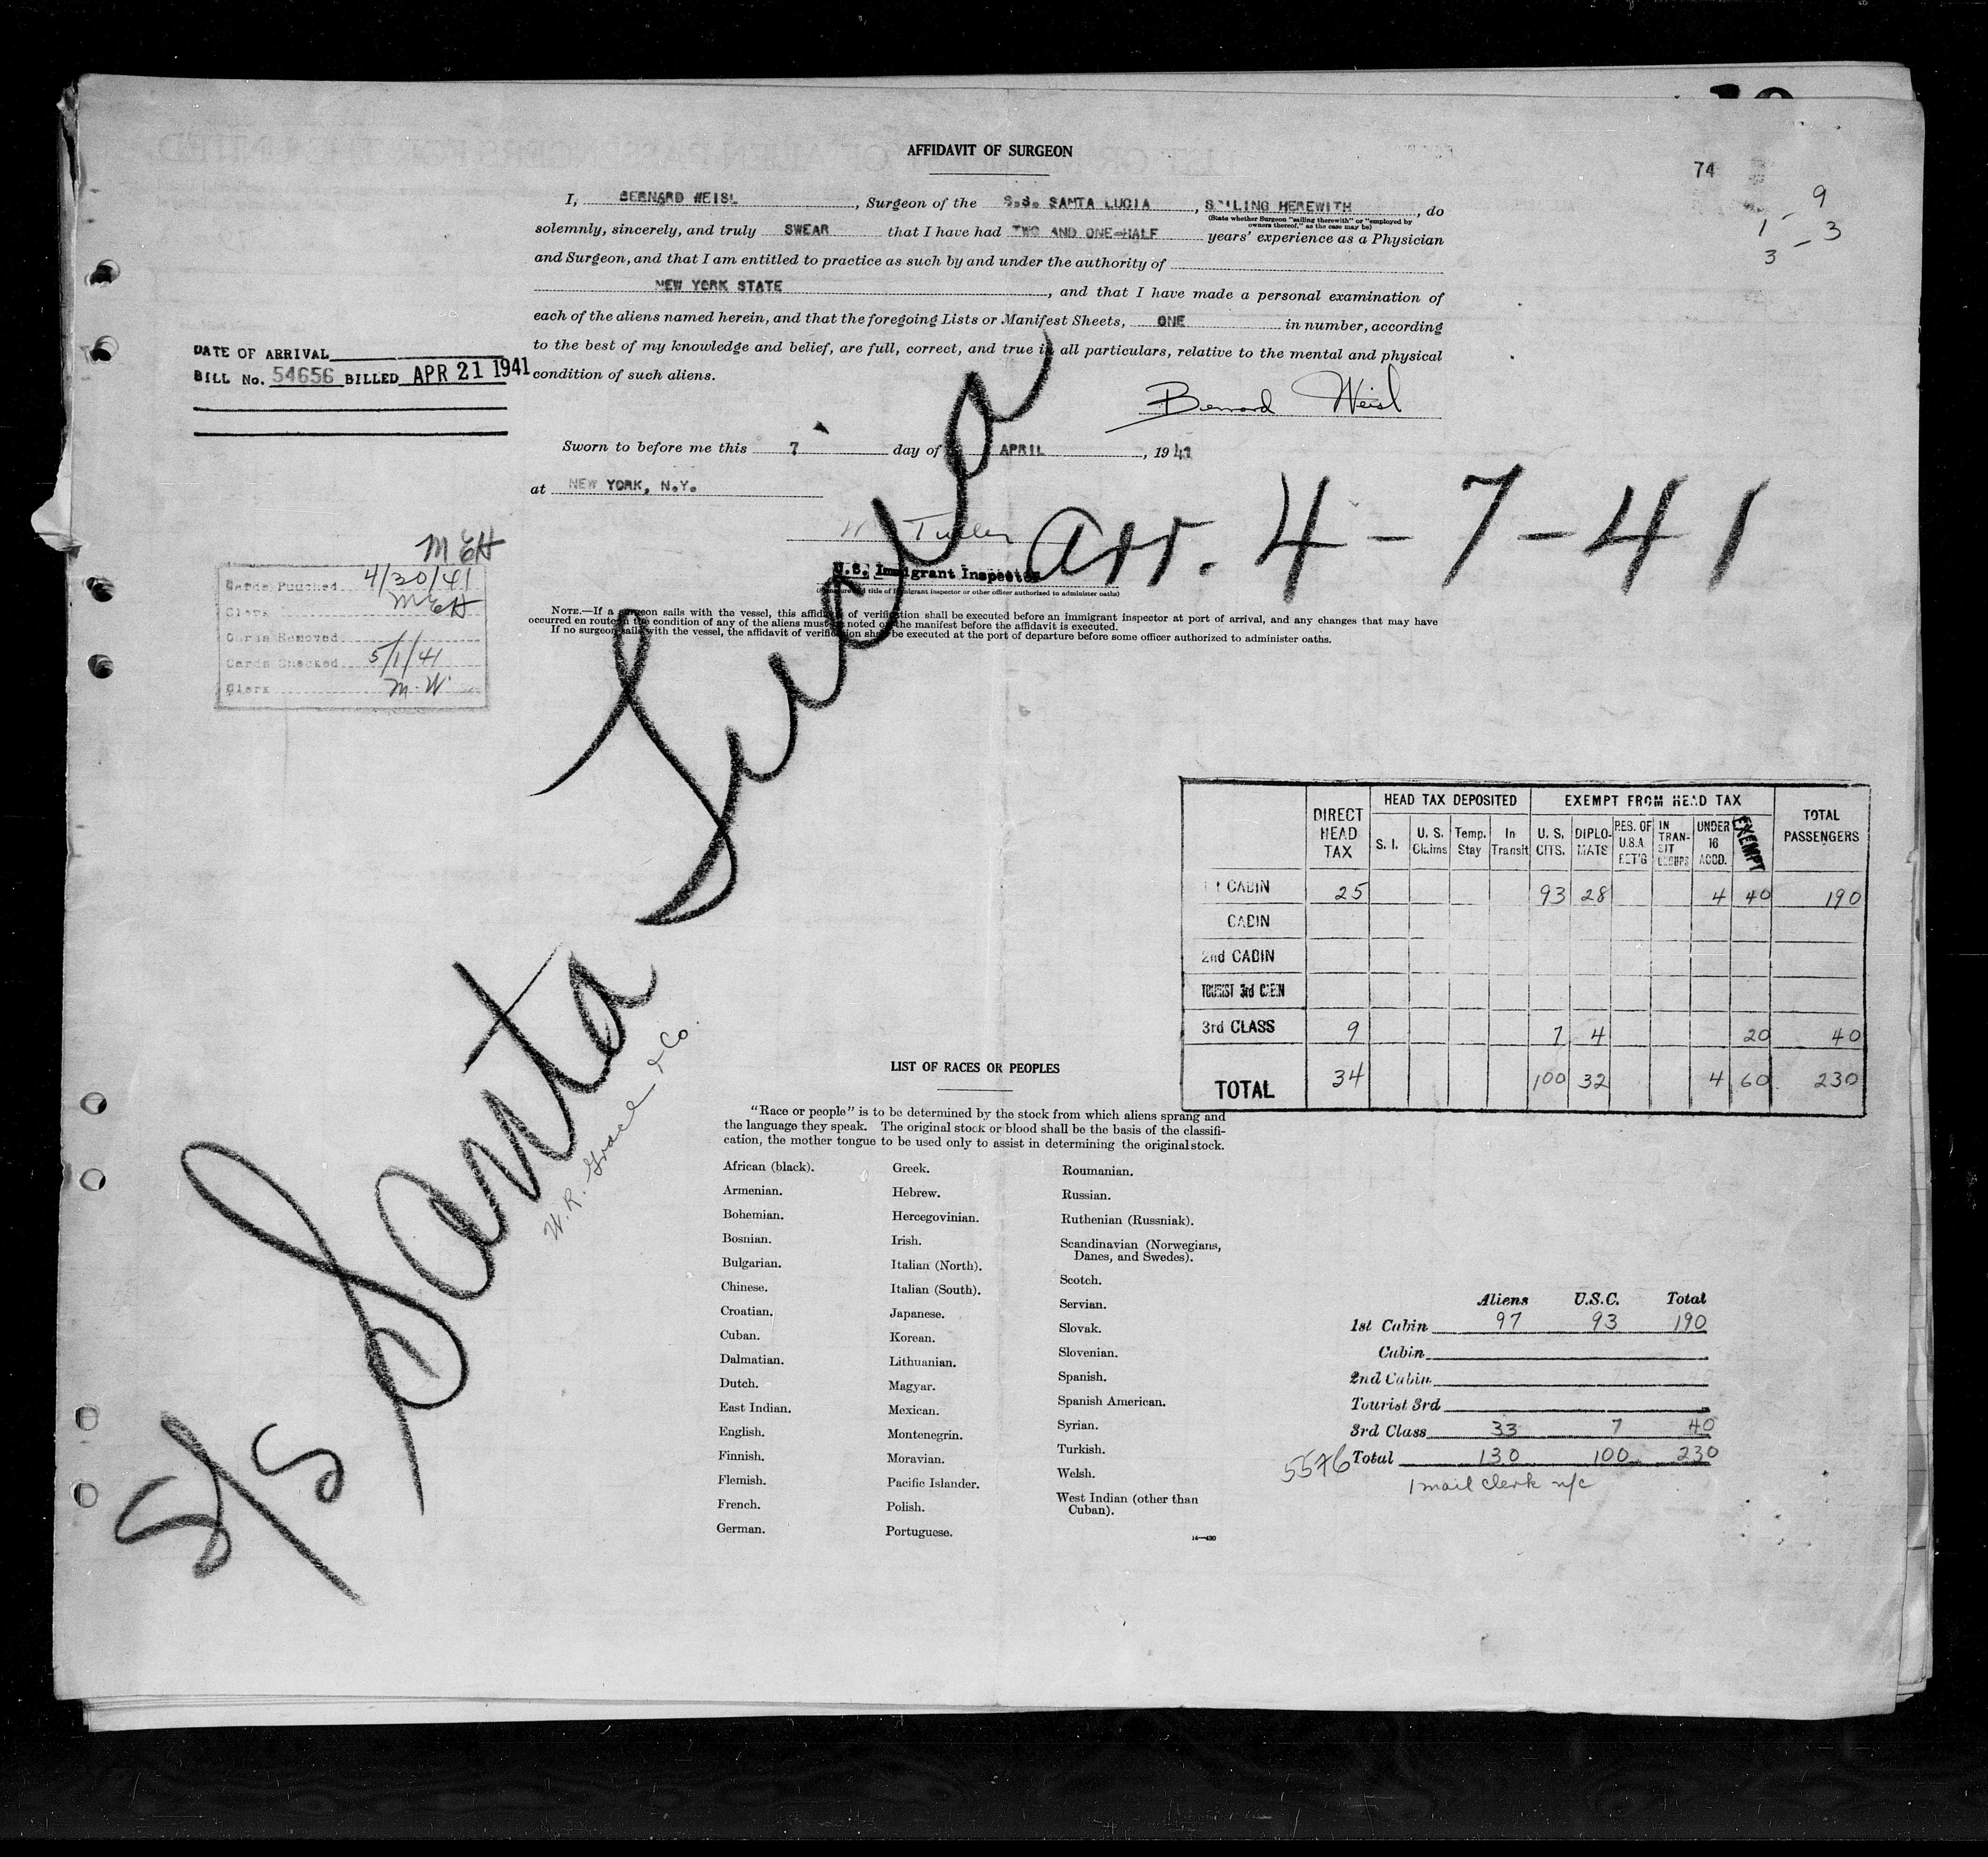 AFFIDAVIT OF SURGEON
74
9
1 - 3
3 -
I, BERNARD WEISL, Surgeon of the S.S. SANTA LUCIA, SAILING HEREWITH, do
(State whether Surgeon "sailing therewith" or "employed by
owners thereof," as the case may be)
solemnly, sincerely, and truly SWEAR that I have had TWO AND ONE-HALF years' experience as a Physician
and Surgeon, and that I am entitled to practice as such by and under the authority of
NEW YORK STATE, and that I have made a personal examination of
each of the aliens named herein, and that the foregoing Lists or Manifest Sheets, ONE in number, according
to the best of my knowledge and belief, are full, correct, and true in all particulars, relative to the mental and physical
condition of such aliens.
DATE OF ARRIVAL
BILL No. 54656 BILLED APR 21 1941
Bernard Weisl
Sworn to before me this 7 day of APRIL, 1941
at NEW YORK, N.Y.
Arr. 4-7-41
U.S. Immigrant Inspector
(Signature and title of immigrant inspector or other officer authorized to administer oaths)
NOTE.—If a surgeon sails with the vessel, this affidavit of verification shall be executed before an immigrant inspector at port of arrival, and any changes that may have
occurred en route in the condition of any of the aliens must be noted on the manifest before the affidavit is executed.
If no surgeon sails with the vessel, the affidavit of verification shall be executed at the port of departure before some officer authorized to administer oaths.
MEH
Cards Punched 4/30/41
Clerk MEH
Cards Removed
Cards Checked 5/1/41
Clerk M.W.
S/S Santa Lucia
W. R. Grace & Co.
DIRECT HEAD TAX
HEAD TAX DEPOSITED
EXEMPT FROM HEAD TAX
TOTAL PASSENGERS
S. I.
U. S. Claims
Temp. Stay
In Transit
U. S. CITS.
DIPLO-MATS
RES. OF U.S.A RET'G
IN TRAN-SIT GROUPS
UNDER 16 ACCD.
EXEMPT
1st CABIN 25 93 28 4 40 190
CABIN
2nd CABIN
TOURIST 3rd CABIN
3rd CLASS 9 7 4 20 40
TOTAL 34 100 32 4 60 230
LIST OF RACES OR PEOPLES
"Race or people" is to be determined by the stock from which aliens sprang and
the language they speak. The original stock or blood shall be the basis of the classifi-
cation, the mother tongue to be used only to assist in determining the original stock.
African (black).
Armenian.
Bohemian.
Bosnian.
Bulgarian.
Chinese.
Croatian.
Cuban.
Dalmatian.
Dutch.
East Indian.
English.
Finnish.
Flemish.
French.
German.
Greek.
Hebrew.
Hercegovinian.
Irish.
Italian (North).
Italian (South).
Japanese.
Korean.
Lithuanian.
Magyar.
Mexican.
Montenegrin.
Moravian.
Pacific Islander.
Polish.
Portuguese.
Roumanian.
Russian.
Ruthenian (Russniak).
Scandinavian (Norwegians,
Danes, and Swedes).
Scotch.
Servian.
Slovak.
Slovenian.
Spanish.
Spanish American.
Syrian.
Turkish.
Welsh.
West Indian (other than
Cuban).
14—430
Aliens U.S.C. Total
1st Cabin 97 93 190
Cabin
2nd Cabin
Tourist 3rd
3rd Class 33 7 40
5576 Total 130 100 230
1 mail clerk n/c